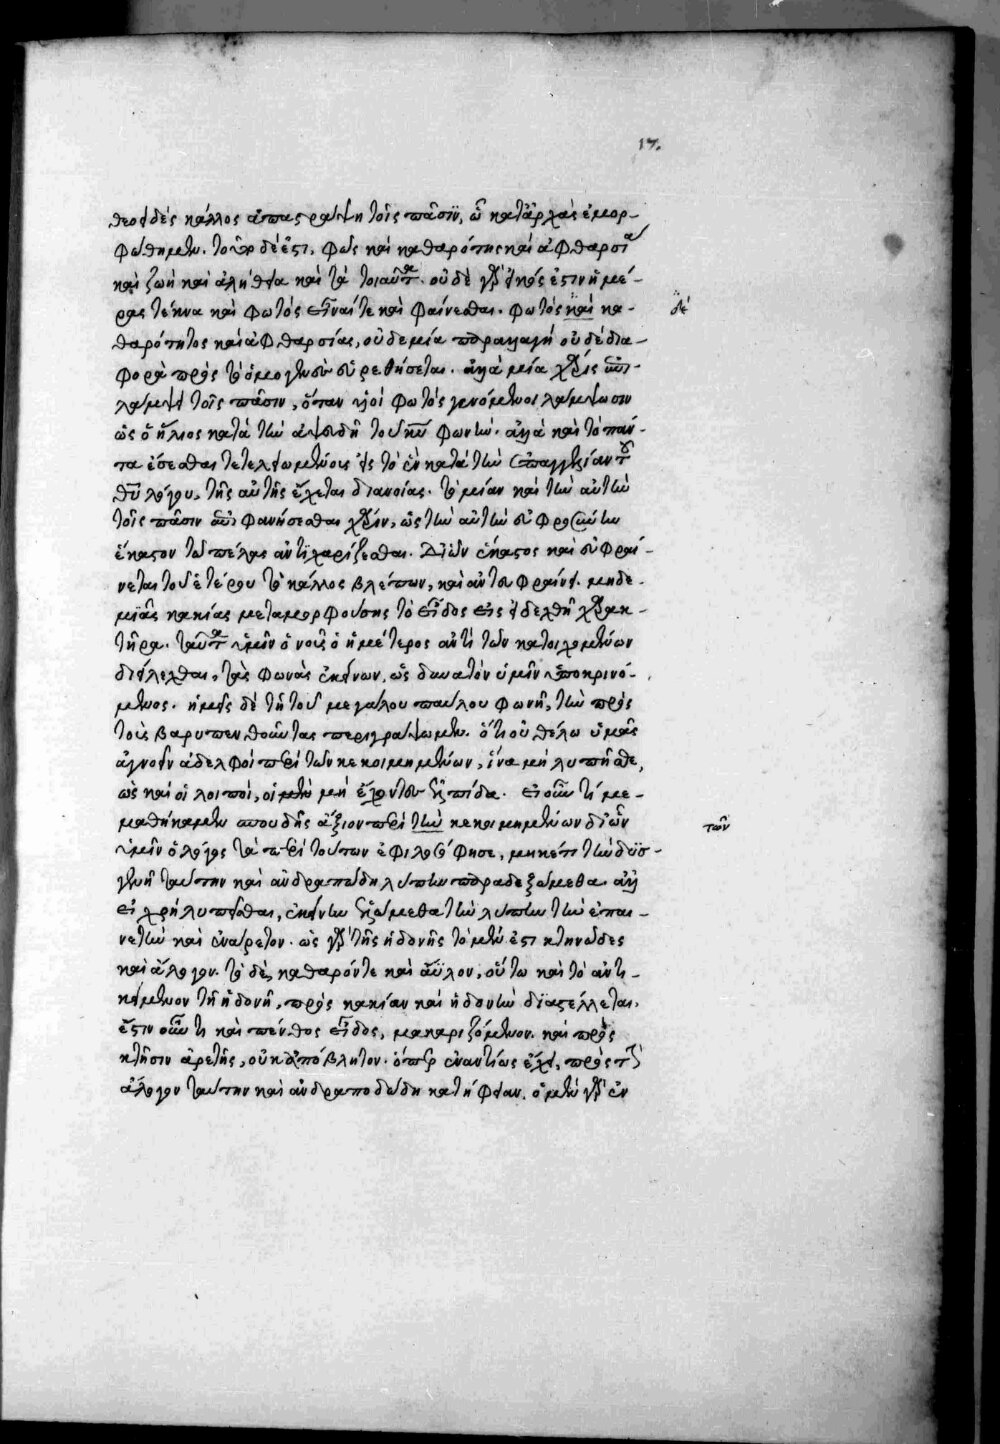 17.
θεοειδὲς κάλλος ἀπαστράψῃ τοῖς πᾶσιν, ᾧ κατ' ἀρχὰς ἐμορ-
φώθημεν. τοῦτο δέ ἐστι, φῶς καὶ καθαρότης καὶ ἀφθαρσία
καὶ ζωὴ καὶ ἀλήθεια καὶ τὰ τοιαῦτα. οὐδὲ γὰρ εἰκός ἐστιν ἡμέ-
ρας τέκνα καὶ φωτὸς εἶναί τε καὶ φαίνεσθαι. φωτὸς καὶ κα-
δὲ
θαρότητος καὶ ἀφθαρσίας, οὐδεμία παραλαγὴ οὐδὲ δια-
φορὰ πρὸς τὸ ὁμογενὲς εὑρεθήσεται. ἀλλὰ μία χάρις ἐπι-
λάμψει τοῖς πᾶσιν, ὅταν υἱοὶ φωτὸς γενόμενοι λάμψωσιν
ὡς ὁ ἥλιος κατὰ τὴν ἀψευδῆ τοῦ κυ φωνήν. ἀλλὰ καὶ τὸ πάν-
τα ἔσεσθαι τετελειωμένους εἰς τὸ ἓν κατὰ τὴν ἐπαγγελίαν τοῦ
θυ λόγου, τῆς αὐτῆς ἔχεται διανοίας. τὸ μίαν καὶ τὴν αὐτὴν
τοῖς πᾶσιν ἐπιφανήσεσθαι χάριν, ὥς τὴν αὐτὴν εὐφροσύνην
ἕκαστον τῷ πέλας ἀντιχαρίζεσθαι. δι' ὧν ἕκαστος καὶ εὐφραί-
νεται τοῦ ἑτέρου τὸ κάλλος βλέπων, καὶ ἀντευφραίνει. μηδε-
μιᾶς κακίας μεταμορφούσης τὸ εἶδος εἰς εἰδεχθῆ χαρακ-
τῆρα. ταῦτα ἡμῖν ὁ νοῦς ὁ ἡμέτερος ἀντὶ τῶν κατοιχομένων
διείλεκται, τὰς φωνὰς ἐκείνων, ὡς δυνατὸν ὑμῖν ὑποκρινό-
μενος. ἡμεῖς δὲ τῇ τοῦ μεγάλου παύλου φωνῇ, τὴν πρὸς
τοὺς βαρυπενθοῦντας περιγράψωμεν. ὅτι οὐ θέλω ὑμᾶς
ἀγνοεῖν ἀδελφοὶ περὶ τῶν κεκοιμημένων, ἵνα μὴ λυπῆσθε,
ὡς καὶ οἱ λοιποί, οἱ μὴ ἔχοντες ἐλπίδα. εἰ οὖν τι με-
μαθήκαμεν σπουδῆς ἄξιον περὶ τὴν κεκοιμημένων δι' ὧν
τῶν
ἡμῖν ὁ λόγος τὰ περὶ τούτων ἐφιλοσόφησε, μηκέτι τὴν δυσ-
γενῆ ταύτην καὶ ἀνδραπώδη λύπην παραδεξώμεθα. ἀλλ'
εἰ χρὴ λυπεῖσθαι, ἐκείνην ἑλώμεθα τὴν λύπην τὴν ἐπαι-
νετὴν καὶ ἐνάρετον. ὡς γὰρ τῆς ἡδονῆς τὸ μέν ἐστι κτηνῶδες
καὶ ἄλογον. τὸ δὲ, καθαρόν τε καὶ ἄϋλον, οὕτω καὶ τὸ ἀντι-
κείμενον τῇ ἡδονῇ, πρὸς κακίαν καὶ ἡδονὴν διαστέλλεται.
ἔστιν οὖν τι καὶ πένθος εἶδος, μακαριζόμενον. καὶ πρὸς
κτῆσιν ἀρετῆς, οὐκ ἀπόβλητον. ὅπερ ἐναντίως ἔχει, πρὸς τὴν
ἄλογον ταύτην καὶ ἀνδραποδώδη κατήφειαν. ὁ μὲν γὰρ ἐν